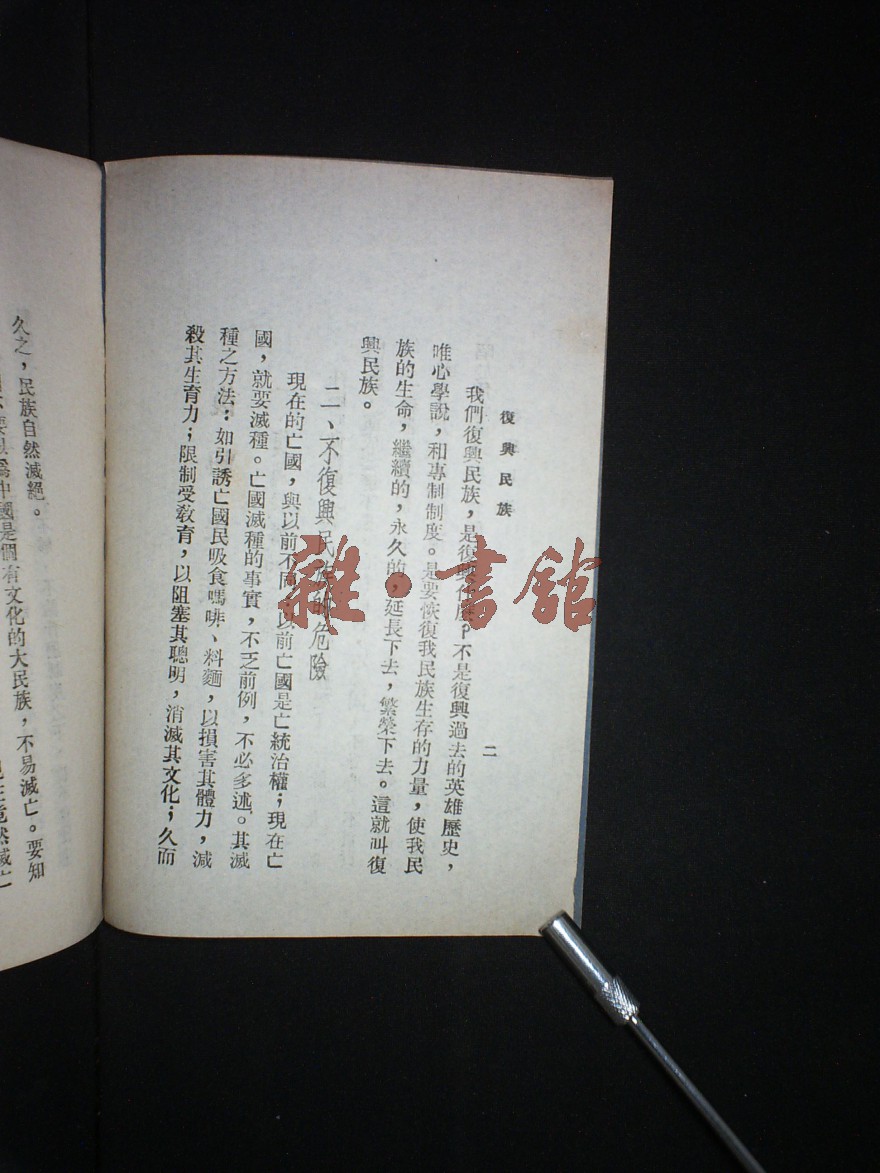 復興民族
二
我們復興民族，是復興什麼？不是復興過去的英雄歷史，
唯心學說，和專制制度。是要恢復我民族生存的力量，使我民
族的生命，繼續的，永久的，延長下去，繁榮下去。這就叫復
興民族。
二、不復興民族的危險
現在的亡國，與以前不同，以前亡國是亡統治權；現在亡
國，就要滅種。亡國滅種的事實，不乏前例，不必多述。其滅
種之方法：如引誘亡國民吸食嗎啡、料麵，以損害其體力，減
殺其生育力；限制受敎育，以阻塞其聰明，消滅其文化；久而
久之，民族自然滅絕。
要以爲中國是個有文化的大民族，不易滅亡。要知
竟然滅亡
雜·書館